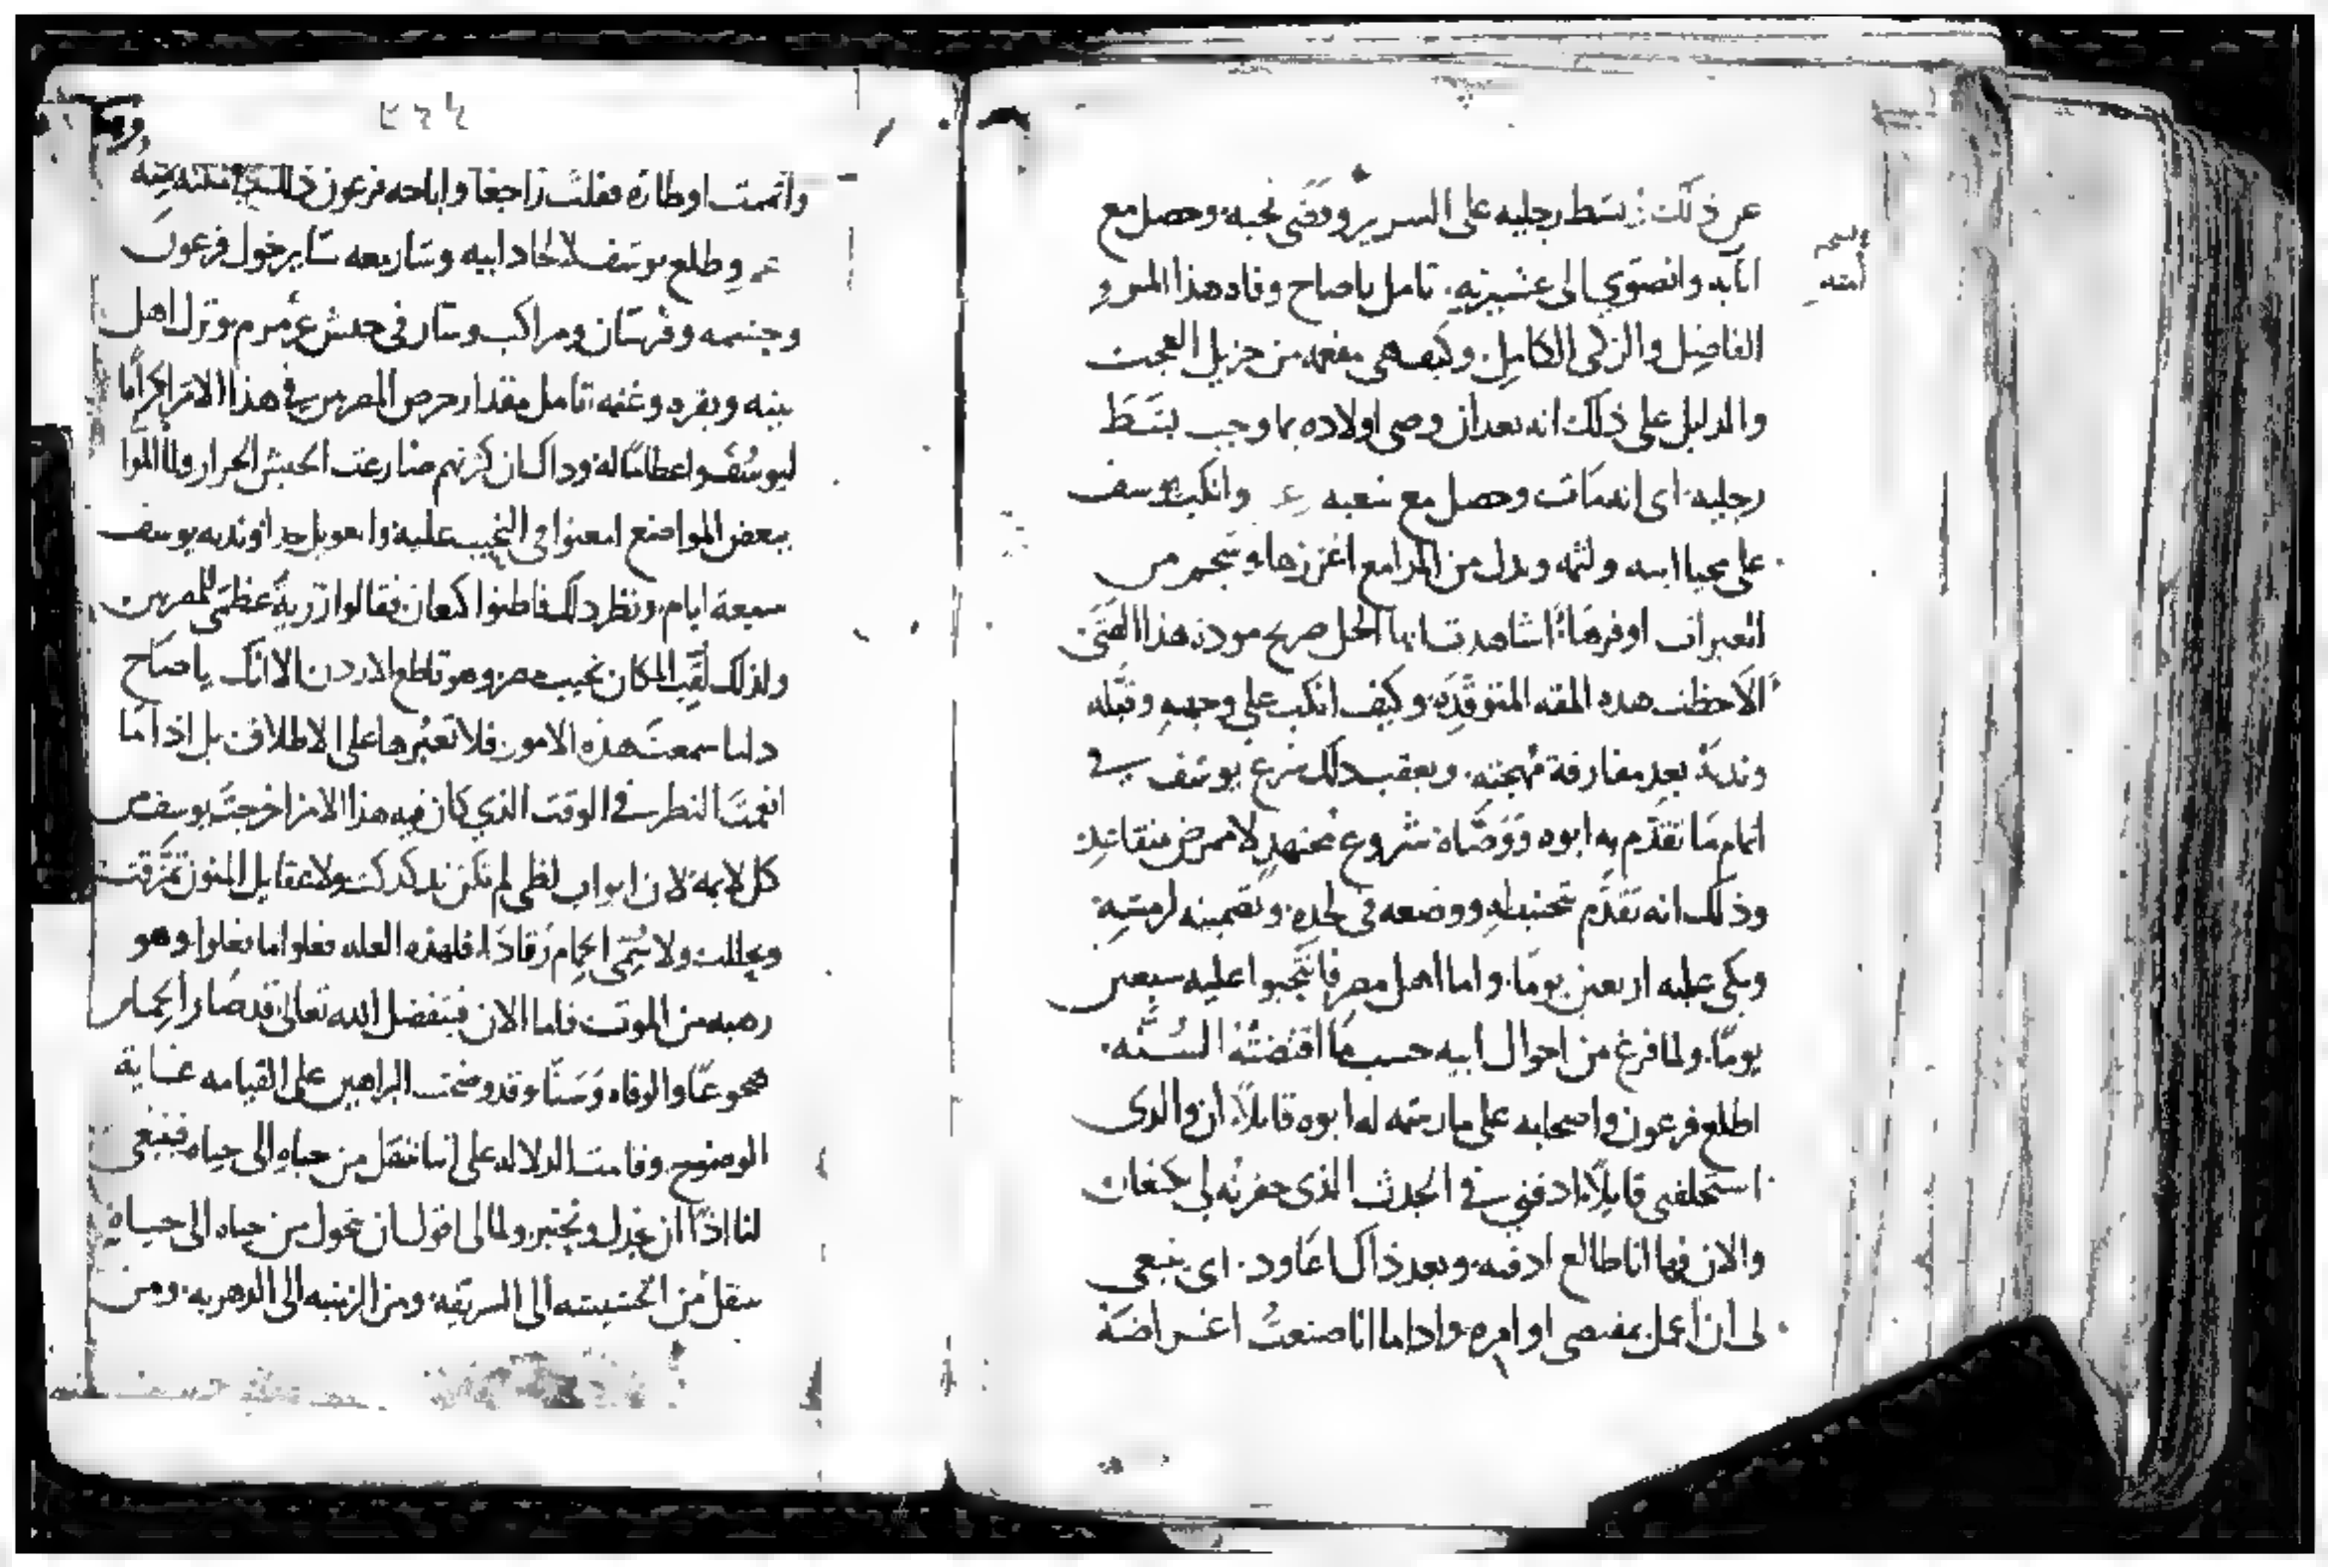 عن ذلك بسط رجليه على السرير وقضى نحبه وحصل مع
ابايه وانضوي الى عشيرته. تامل ياصاح وفاه هذا المرو
الفاضل والزكى الكامل. وكيف هى مفعمه من جزيل العجب
والدليل على ذلك انه بعد ان وصى اولاده بما وجب بسط
رجليه. اى انه مات وحصل مع شعبه وانكب يوسف
على محيا ابيه ولثمه وبدل من المدامع اغزرها وسجم من
العبرات اوفرها اشاهدت ايها الخل صريح مودة هذا الفتى
الاحظت هذه المقه المتوقده وكيف انكب على وجهه وقبله
وندبه بعد مفارقة مهجته. وبعقب ذلك شرع يوسف في
اتمام ما تقدم به ابوه ووصاه شروع مجتهد لا ممرض متقاعد
وذلك انه تقدم بتحنيطه ووضعه فى لحده. وتضمينه لرمسه.
وبكى عليه اربعين يوما. واما اهل مصر فانتحبوا عليه سبعين
يوما. ولما فرغ من احوال ابيه حسب ما اقتضته السنه.
اطلع فرعون واصحابه على ما رسمه له ابوه قايلا ان والدى
استحلفنى قايلا ادفنى في الجدث الذى حفرته لى بكنعان
والان فها انا طالع ادفنه. وبعد ذاك اعاود. اى ينبغى
لى ان اعمل بمقتضى اوامره واذا ما انا صنعت اغراضه
واتممت اوطاره قفلت راجعا واباحه فرعون ذلك
وطلع يوسف لالحاد ابيه وسار معه ساير خول فرعون
وحشمه وفرسان ومراكب وسار فى جيش عرمرم وترك اهل
بيته وبقره وغنمه تامل مقدار حرص المصريين في هذا الامر اكراما
ليوسف واعظاما له وذاك ان كثرتهم ضارعت الجيش الجرار ولما الموا
ببعض المواضع امعنوا فى النحيب عليه والعويل جدا وندبه يوسف
سبعة ايام. ونظر ذلك قاطنوا كنعان فقالوا رزية عظمى للمصريين
ولذلك لقب المكان نحيب مصر وهو قاطع الاردن الا انك ياصاح
اذا ما سمعت هذه الامور فلا تعبرها على الاطلاق بل اذا ما
انعمت النظر في الوقت الذي كان فيه هذا الامر اخرجت يوسف من
كل لايمه لان ابواب لظى لم تكن بعد دكدكت ولا عقايل المنون تمزقت
وحللت ولا سمى الحمام رقادا فلهذه العله فعلوا ما فعلوا وهو
رهبه من الموت فاما الان فبتفضل الله تعالى قد صار الحمام
هجوعا والوفاه وسنا وقد وضحت البراهين على القيامه غاية
الوضوح وقامت الدلاله على اننا ننتقل من حياه الى حياه فينبغى
لنا اذا ان نجذل ونحبر ولما لى اقول ان نحول من حياه الى حياه
ننتقل من الخسيسه الى الشريفه ومن الزمنيه الى الدهريه ومن